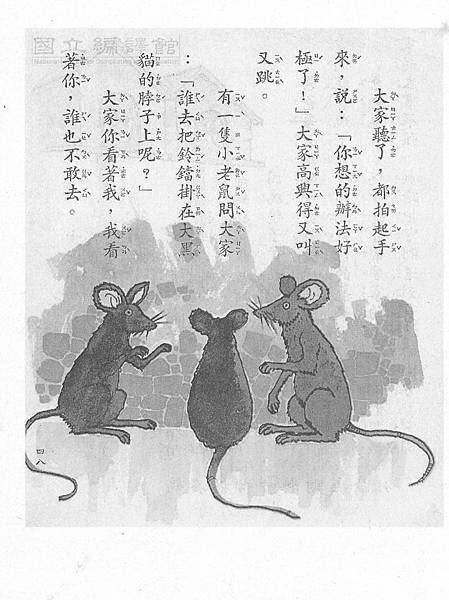 國立編譯館
大家聽了，都拍起手
來，說：「你想的辦法好
極了！」大家高興得又叫
又跳。
有一隻小老鼠問大家
：「誰去把鈴鐺掛在大黑
貓的脖子上呢？」
大家你看著我，我看
著你，誰也不敢去。
四八